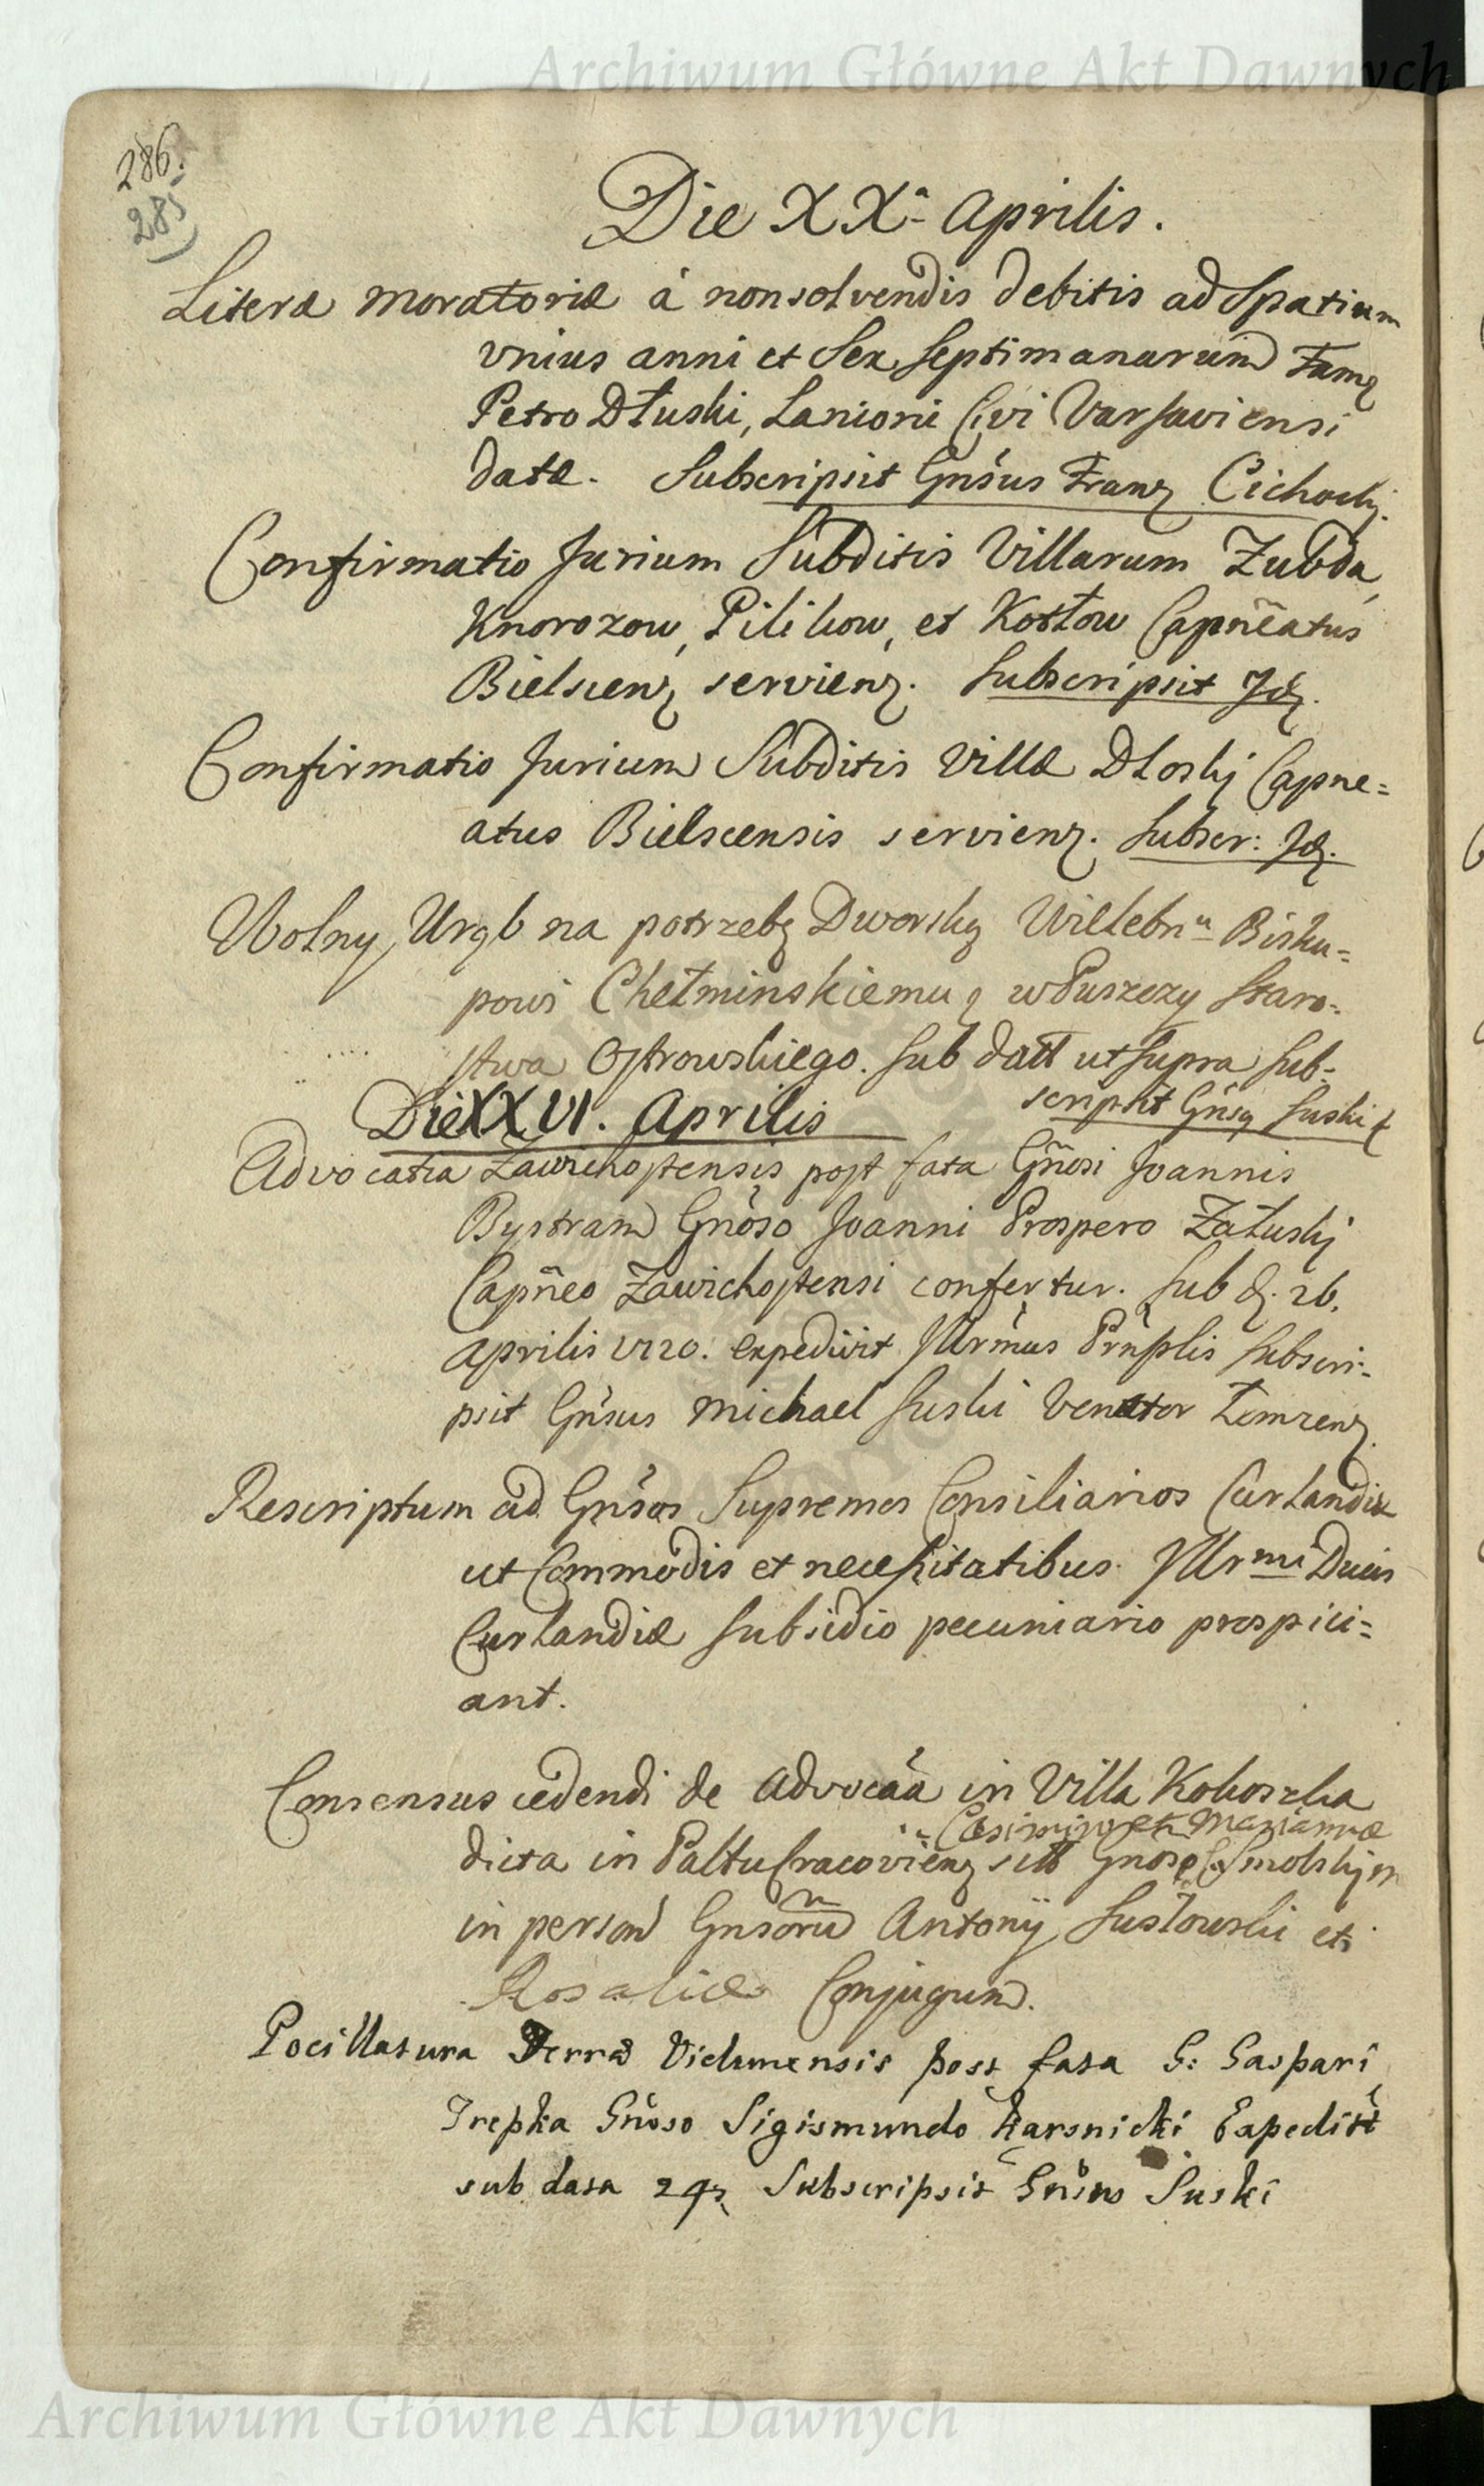 Archiwum Główne Akt Dawnych
286.
285
Die XXª Aprilis.
Literæ moratoriæ à non solvendis debitis ad Spatium
vnius anni et Sex Septimanarum Famę
Petro Dłuski, Lanioni Civi Varsaviensi
datæ. Subscripsit Gnsus Franę Cichockj.
Confirmatio Jurium Subditis Villarum Zubda,
Knorozow, Pilikow, et Kotłow Capneatus
Bielscenę servienę. Subscripsit Idę.
Confirmatio Jurium Subditis Villæ Dłoskj Capne=
atus Bielscensis servienę. Subscr: Idę.
Wolny Urąb na potrzebę Dworską Wielebnu Bisku=
powi Chełminskiemu w Puszczy Staro=
stwa Ostrowskiego. Sub datt ut supra Sub=
scripsit Gnsą Suski
Die XXVI. Aprilis
Advocatia Zawichostensis post fata Gnosi Joannis
Bystram Gnoso Joanni Prospero Załuskj
Capneo Zawichostensi confertur. Sub d. 26.
Aprilis 1720. expedivit Illrmus Prnplis Subscri=
psit Gnsus Michael Suski Venator Łomzenę.
Rescriptum ad Gnsos Supremos Consiliarios Curlandiæ
ut Commodis et necessitatibus Illrmi Ducis
Curlandiæ subsidio pecuniario prospici=
ant.
Consensus cedendi de Advocaa in Villa Kokoszka
Casimiro et Mariannæ
dicta in Pałtu Cracovienę sitt Gnoso Smolskj
in person Gnsoru Antonij Susłowski et
Rosaliæ Conjugum.
Pocillatura Terræ Vielunensis post fata G: Gaspari
Trepka Gnoso Sigismundo Karsnicki Expeditt
sub data 24ę Subscripsit Gnsus Suski
Archiwum Główne Akt Dawnych